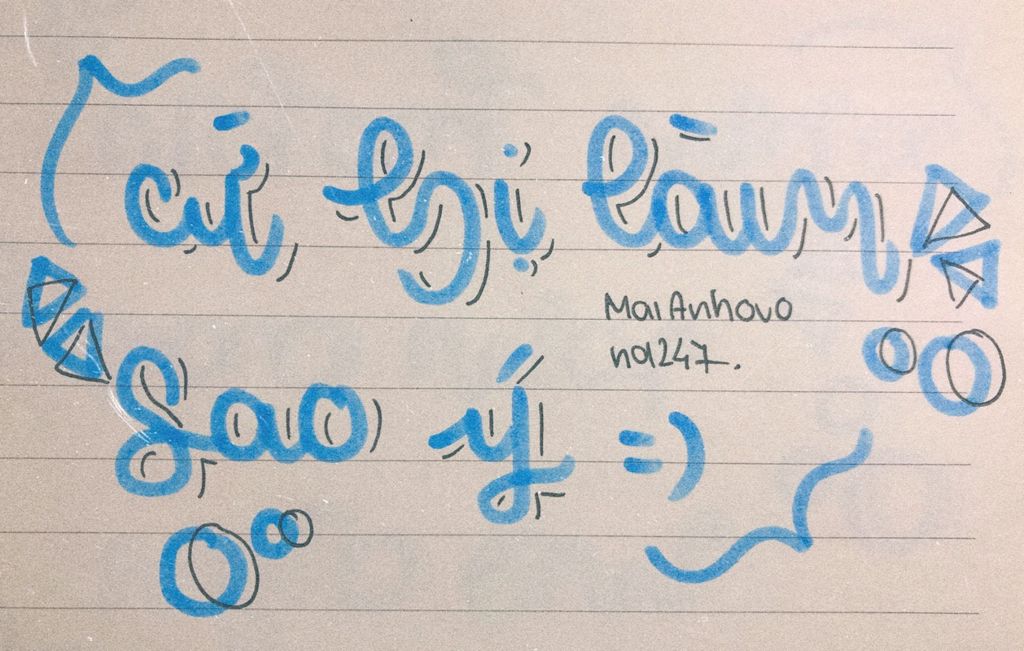 cứ bị làm
MaiAnhovo
nd247.
sao ý =)